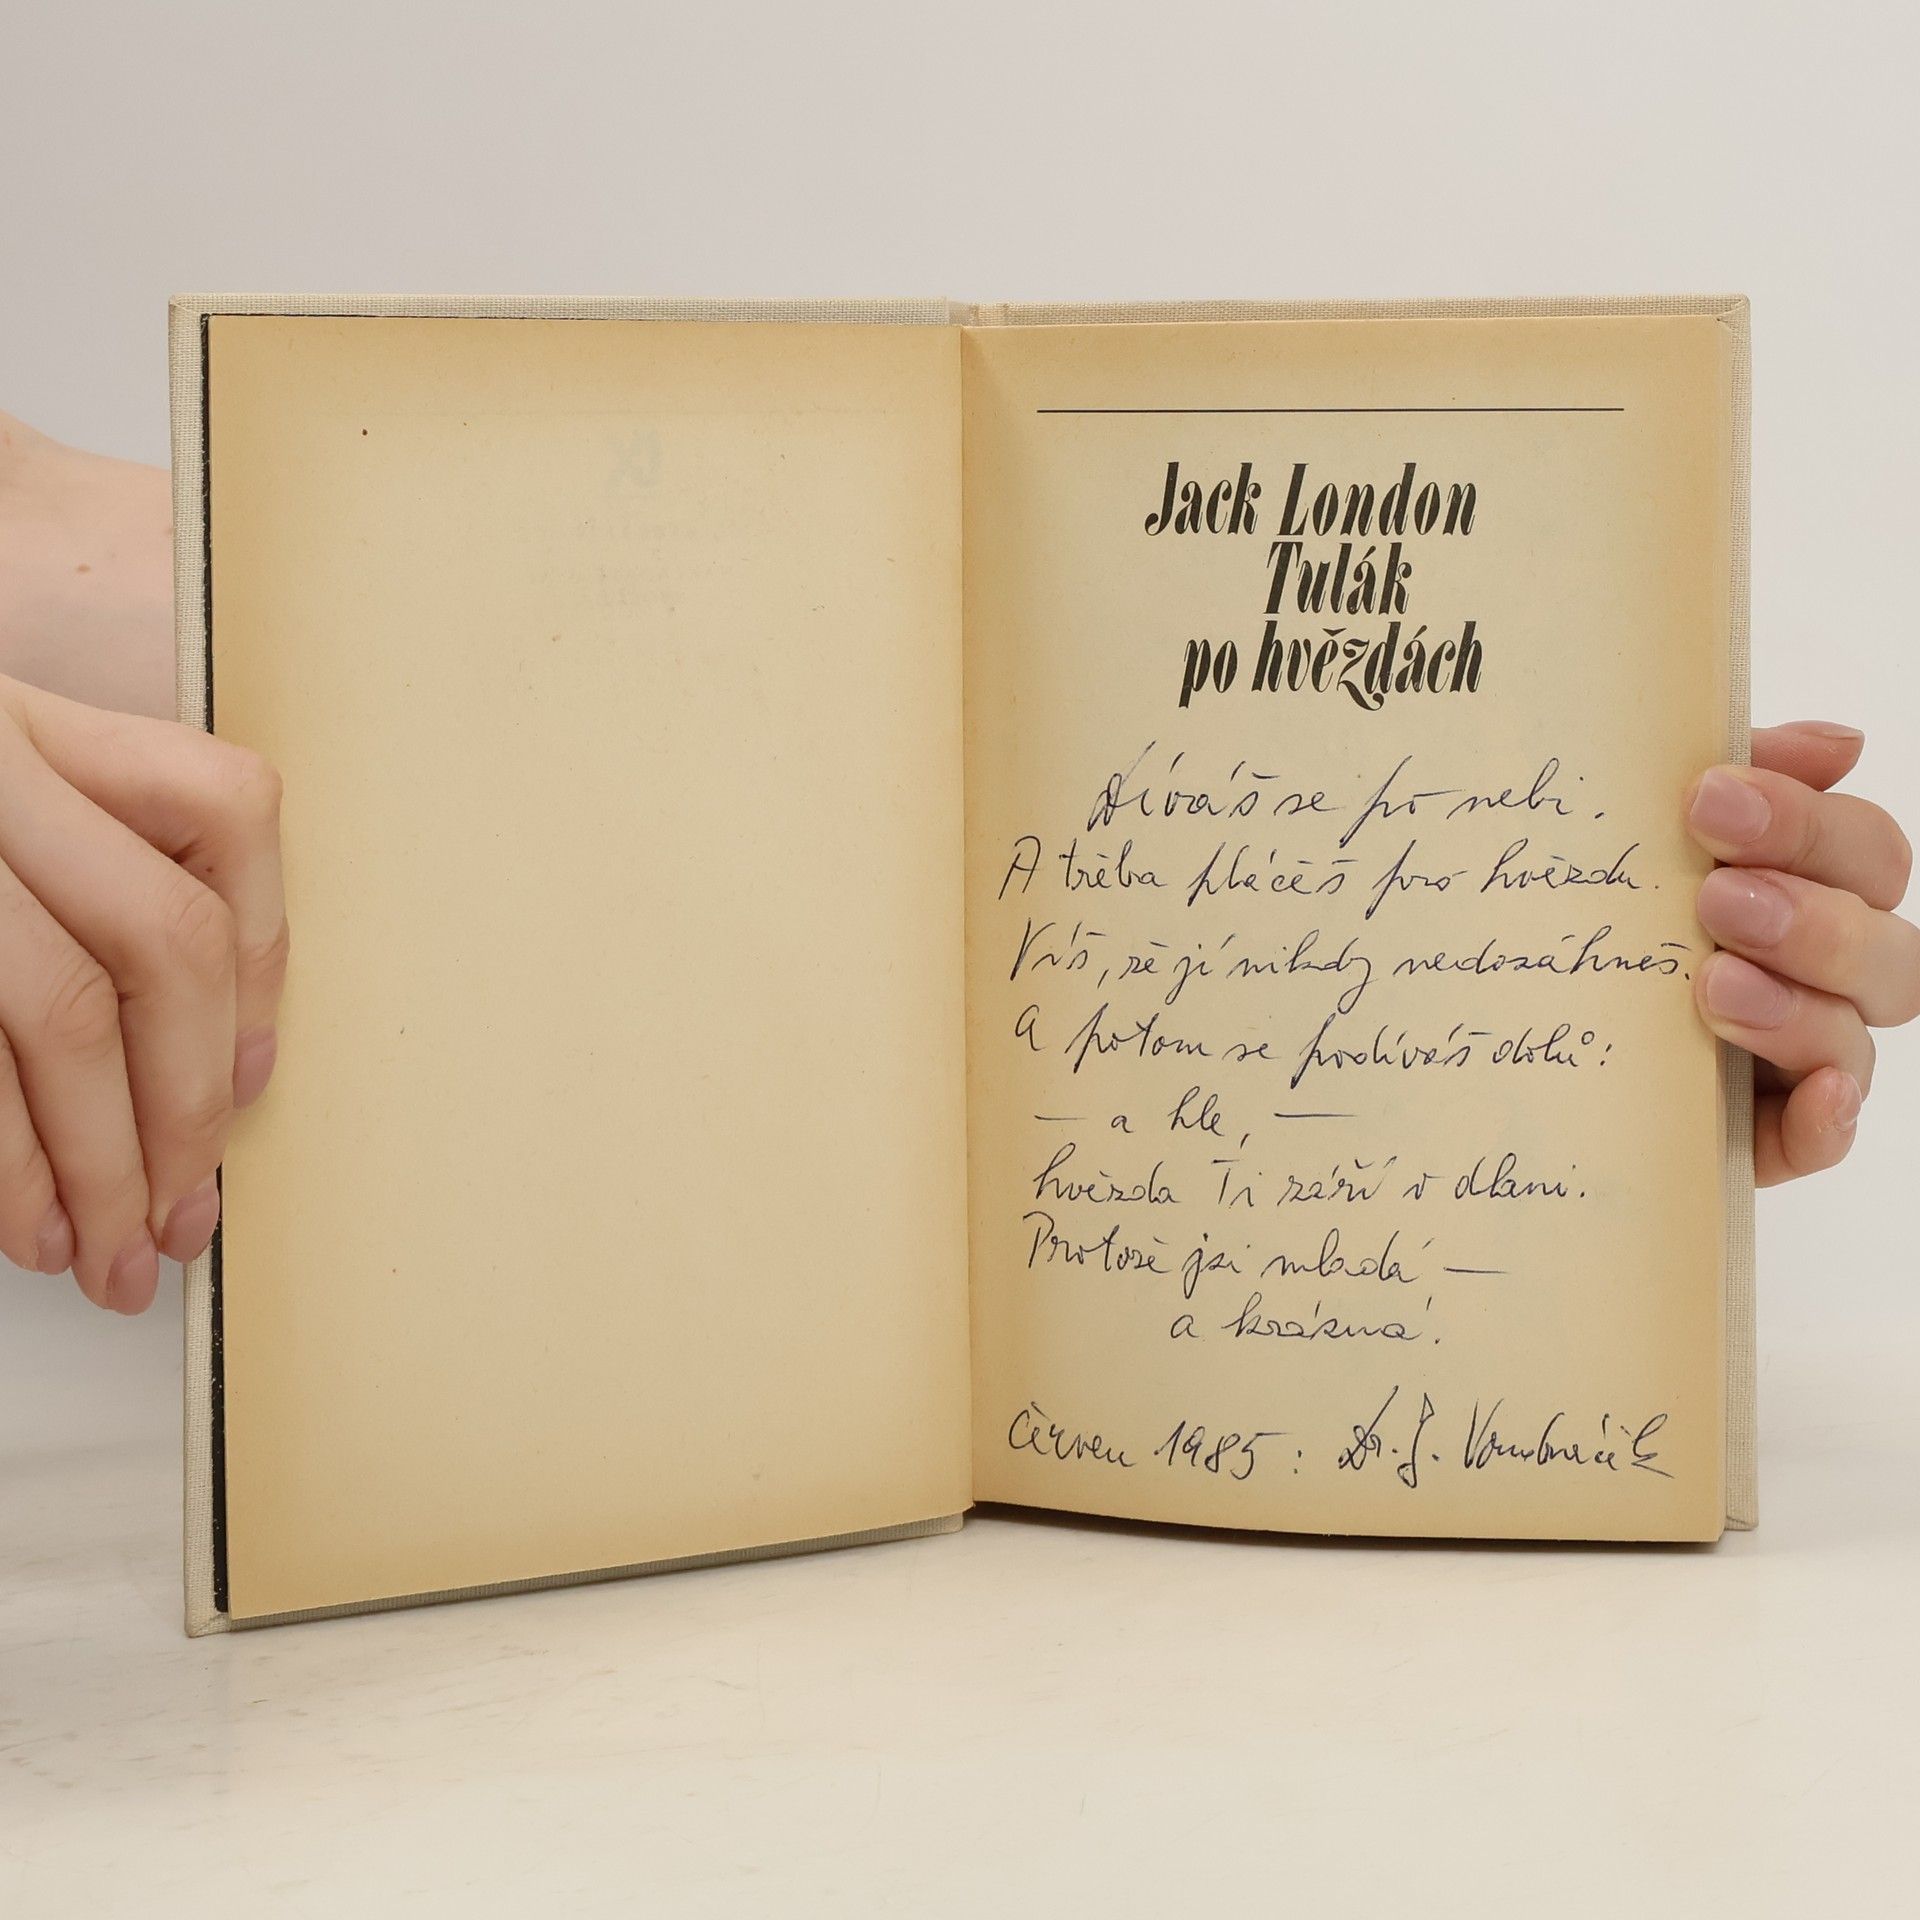 Jack London
Tulák
po hvězdách
Díváš se po nebi.
A třeba pláčeš pro hvězdu.
Víš, že jí nikdy nedosáhneš.
A potom se podíváš dolů:
— a hle, —
hvězda Ti září v dlani.
Protože jsi mladá —
a krásná.
Červen 1985: Dr. J.